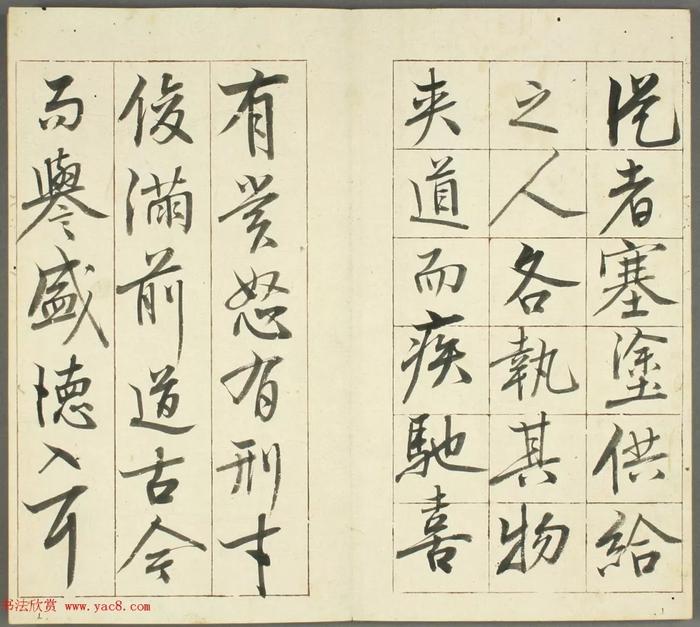 從者塞塗供給
之人各執其物
夾道而疾馳喜
有賞怒有刑才
俊滿前道古今
而譽盛德入耳
书法欣赏 www.yac8.com